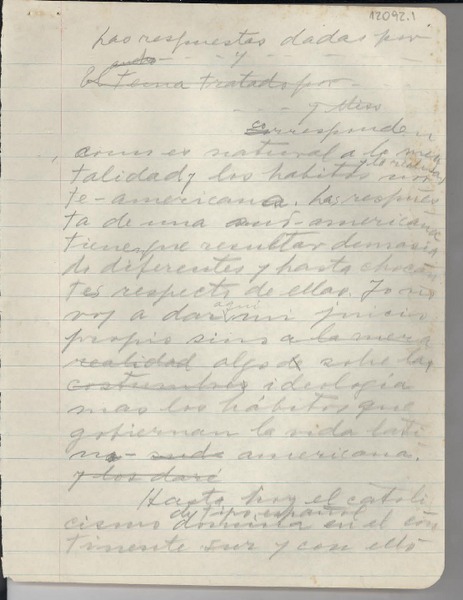 12092.1
Las respuestas dadas por
y
El Tema tratado por
y Miss
corresponden
como es natural a la men
talidad y los hábitos nor
te-americana. Las respues
ta de una sud-americana
tiene que resultar demasia
do diferentes y hasta chocan
tes respecto de ellas. Yo no
voy a dar aquí mi juicio
propio sino a la mera
realidad algo sobre las
costumbres ideología
mas los hábitos que
gobiernan la vida lati
no-sud americana.
y los daré
Hasta hoy el catoli
cismo de tipo español
domina en el con
tinente sur y con ello